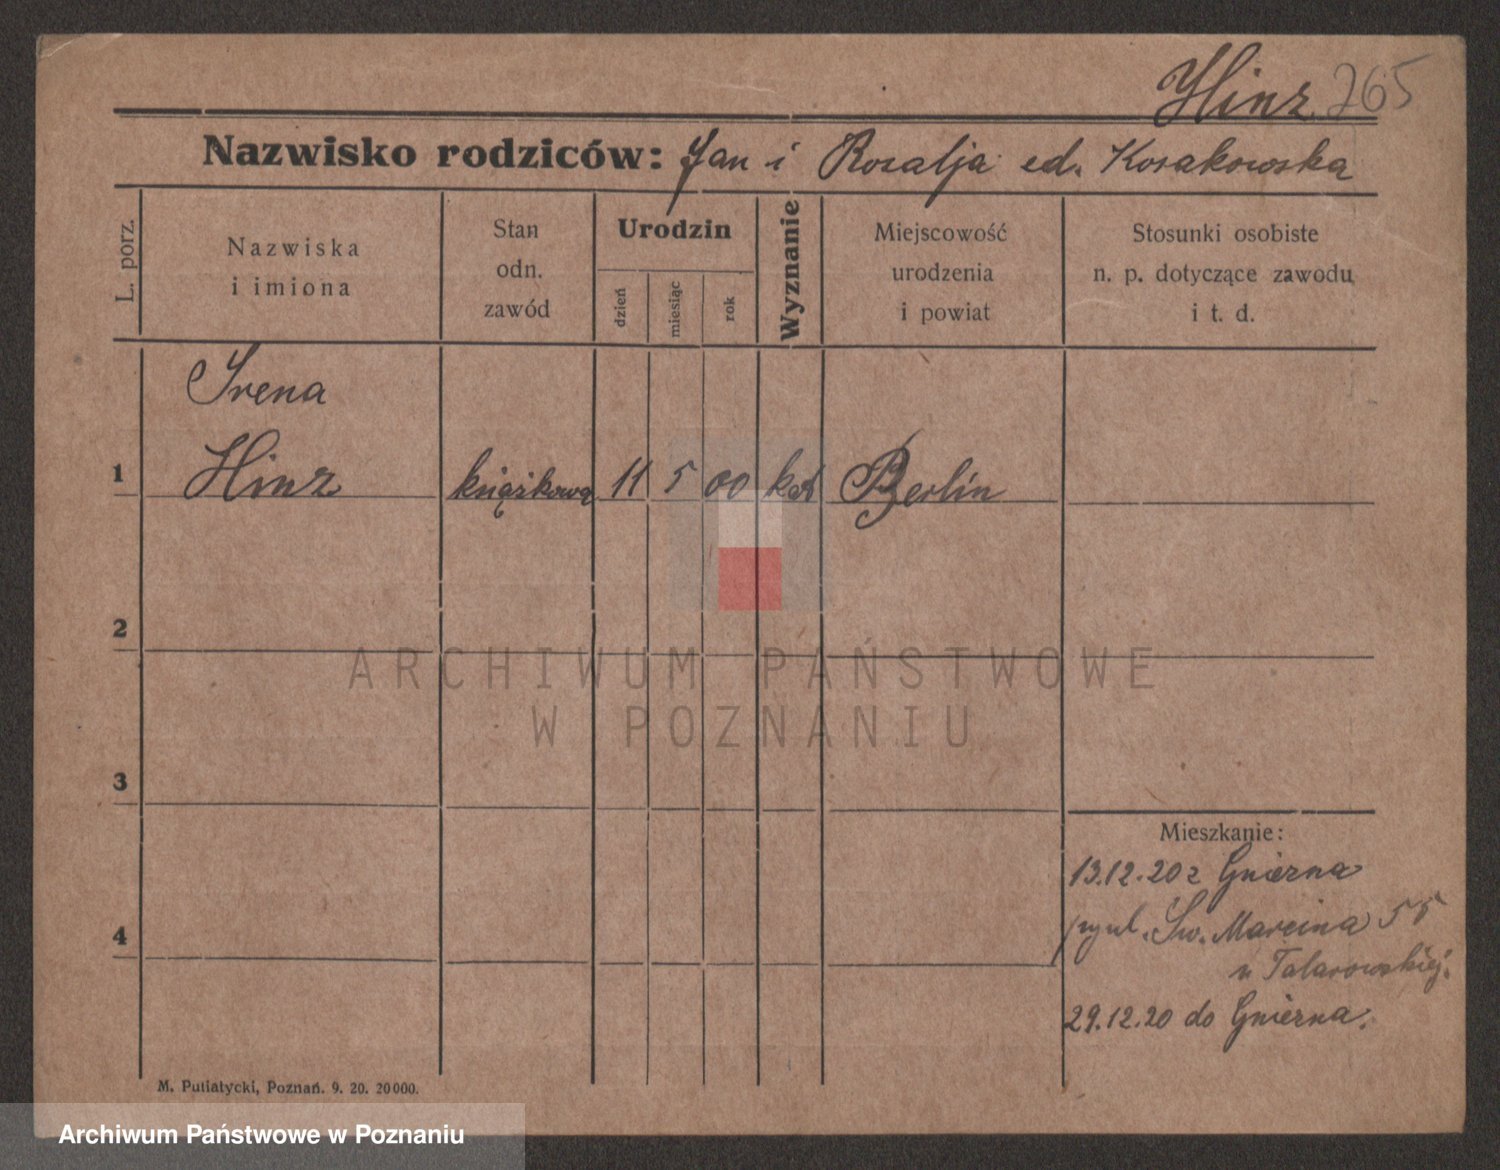 Hinz 265
Nazwisko rodziców: Jan i Rozalja Kosakowska
L. porz.
Nazwiska
i imiona
Stan
odn.
zawód
Urodzin
dzień
miesiąc
rok
Wyznanie
Miejscowość
urodzenia
i powiat
Stosunki osobiste
n. p. dotyczące zawodu
i t. d.
Irena
1 Hinz książkową 11 5 00 kat Berlin
2
3
4
Mieszkanie:
13.12.20 z Gniezna
Św. Marcina 55
u Talarowskiej.
29.12.20 do Gniezna.
M. Putiatycki, Poznań. 9. 20. 20000.
ARCHIWUM PAŃSTWOWE
W POZNANIU
Archiwum Państwowe w Poznaniu